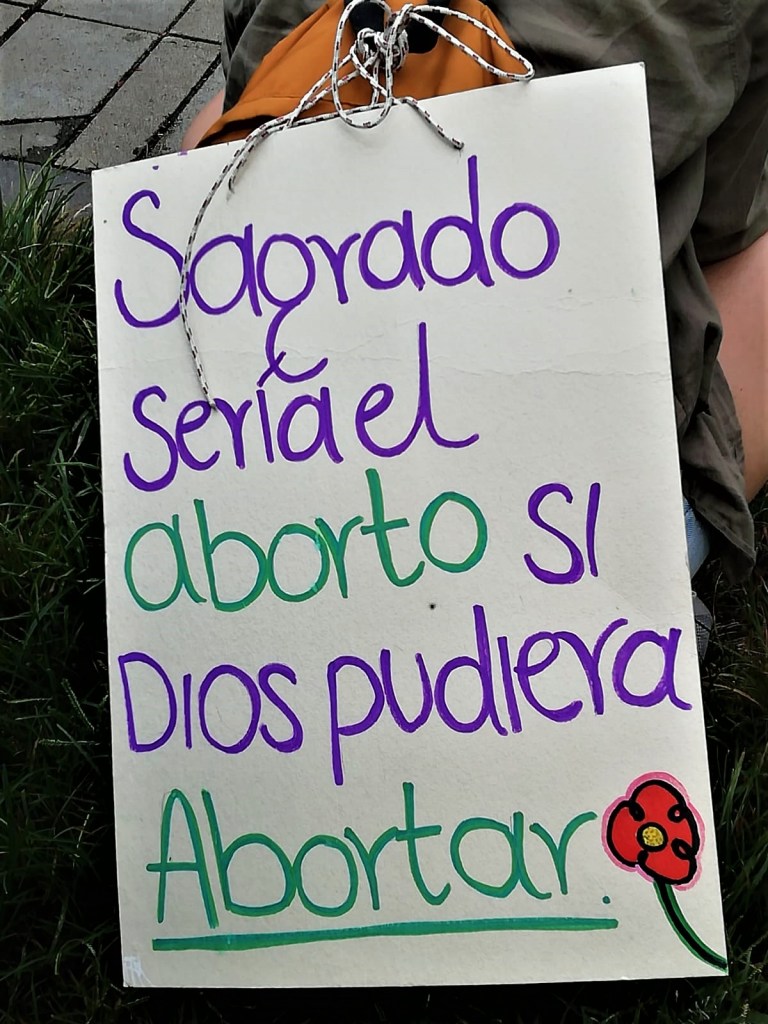 Sagrado
sería el
aborto SI
DIOS pudiera
Abortar.